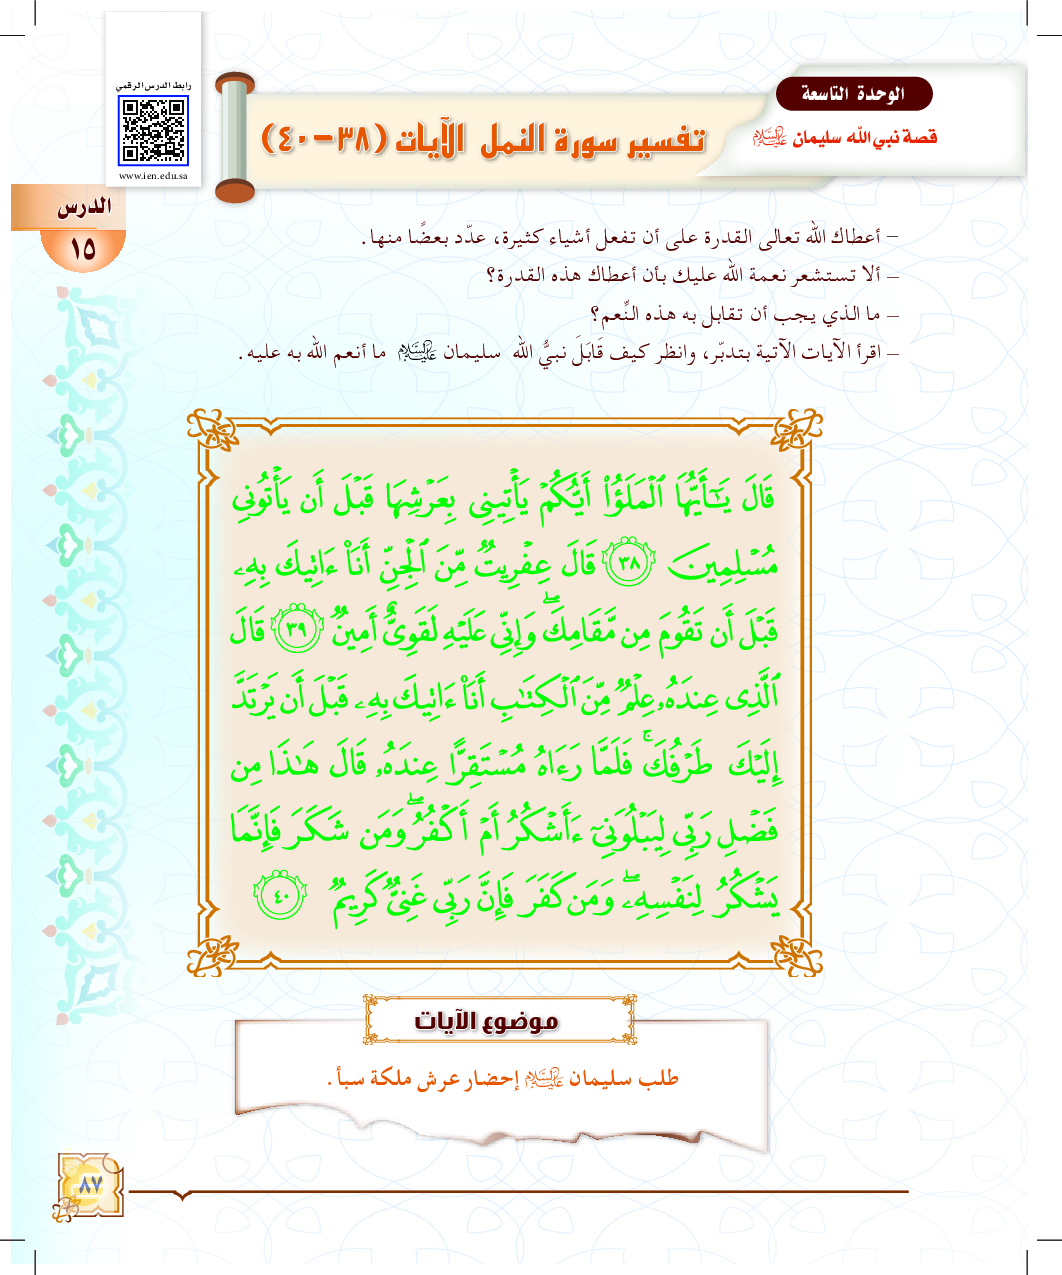 رابط الدرس الرقمي
www.ien.edu.sa
الوحدة التاسعة
قصة نبي الله سليمان عليه السلام
تفسير سورة النمل الآيات (٣٨-٤٠)
الدرس
١٥
– أعطاك الله تعالى القدرة على أن تفعل أشياء كثيرة، عدّد بعضًا منها.
– ألا تستشعر نعمة الله عليك بأن أعطاك هذه القدرة؟
– ما الذي يجب أن تقابل به هذه النِّعم؟
– اقرأ الآيات الآتية بتدبّر، وانظر كيف قَابَلَ نبيُّ الله سليمان عليه السلام ما أنعم الله به عليه.
قَالَ يَـٰٓأَيُّهَا ٱلْمَلَؤُا۟ أَيُّكُمْ يَأْتِينِى بِعَرْشِهَا قَبْلَ أَن يَأْتُونِى
مُسْلِمِينَ ٣٨ قَالَ عِفْرِيتٌ مِّنَ ٱلْجِنِّ أَنَا۠ ءَاتِيكَ بِهِۦ
قَبْلَ أَن تَقُومَ مِن مَّقَامِكَ ۖ وَإِنِّى عَلَيْهِ لَقَوِىٌّ أَمِينٌ ٣٩ قَالَ
ٱلَّذِى عِندَهُۥ عِلْمٌ مِّنَ ٱلْكِتَـٰبِ أَنَا۠ ءَاتِيكَ بِهِۦ قَبْلَ أَن يَرْتَدَّ
إِلَيْكَ طَرْفُكَ ۚ فَلَمَّا رَءَاهُ مُسْتَقِرًّا عِندَهُۥ قَالَ هَـٰذَا مِن
فَضْلِ رَبِّى لِيَبْلُوَنِىٓ ءَأَشْكُرُ أَمْ أَكْفُرُ ۖ وَمَن شَكَرَ فَإِنَّمَا
يَشْكُرُ لِنَفْسِهِۦ ۖ وَمَن كَفَرَ فَإِنَّ رَبِّى غَنِىٌّ كَرِيمٌ ٤٠
موضوع الآيات
طلب سليمان عليه السلام إحضار عرش ملكة سبأ.
٨٧